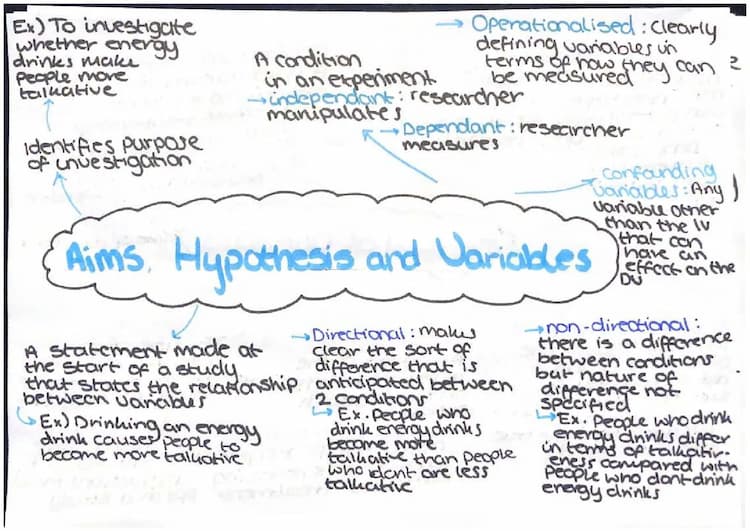 Ex) To investigate
whether energy
drinks make
people more
talkative
Identifies purpose
of investigation
A condition
in an experiment
→independant: researcher
manipulates
→Dependant: researcher
measures
→ Operationalised: Clearly
defining variables in
terms of how they can
be measured
confounding
variables: Any
variable other
than the IV
that can
have an
effect on the
DV
Aims, Hypothesis and Variables
A statement made at
the start of a study
that states the relationship
between variables
Ex) Drinking an energy
drink causes people to
become more talkative
→Directional: makes
clear the sort of
difference that is
anticipated between
2 conditions
Ex. People who
drink energy drinks
become more
talkative than people
who idont are less
talkative
→non-directional:
there is a difference
between conditions
but nature of
difference not
specified
Ex. People who drink
energy drinks differ
in terms of talkativ-
eness compared with
people who dont drink
energy drinks